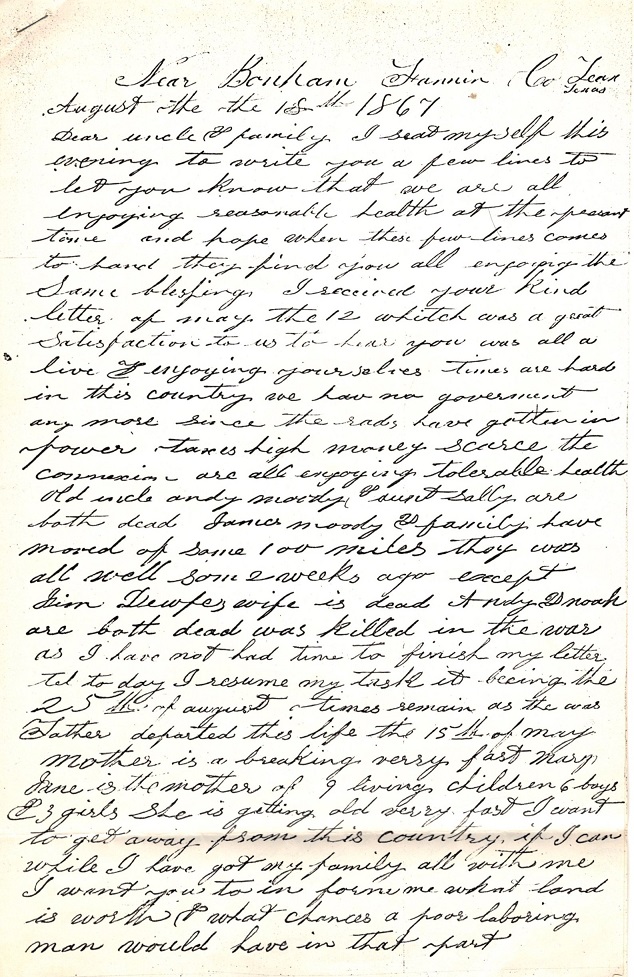 Near Bonham Fannin Co Texas
Texas
August the the 18th 1867
Dear uncle & family I seat myself this
evening to write you a few lines to
let you know that we are all
enjoying reasonable health at the preasant
time and hope when these few lines comes
to hand they find you all enjoying the
Same blessing I received your kind
letter of may the 12 whitch was a great
satisfaction to us to hear you was all a
live & enjoying yourselves times are hard
in this country we hav no goverment
any more since the rads have gotten in
power taxes high money scarce the
connexion are all enjoying tolerable health
Old uncle andy moody & aunt Sally are
both dead James moody & family have
moved of some 100 miles they was
all well som 2 weeks ago except
Jim wife is dead Andy & noah
are both dead was killed in the war
as I have not had time to finish my letter
tel to day I resume my task it beeing the
25th of august times remain as the was
Father departed this life the 15th of may
Mother is a breaking verry fast Mary
Jane is the mother of 9 living children 6 boys
& 3 girls She is getting old verry fast I want
to get away from this country if I can
while I have got my family all with me
I want you to in forme me what land
is worth & what chances a poor laboring
man would have in that part